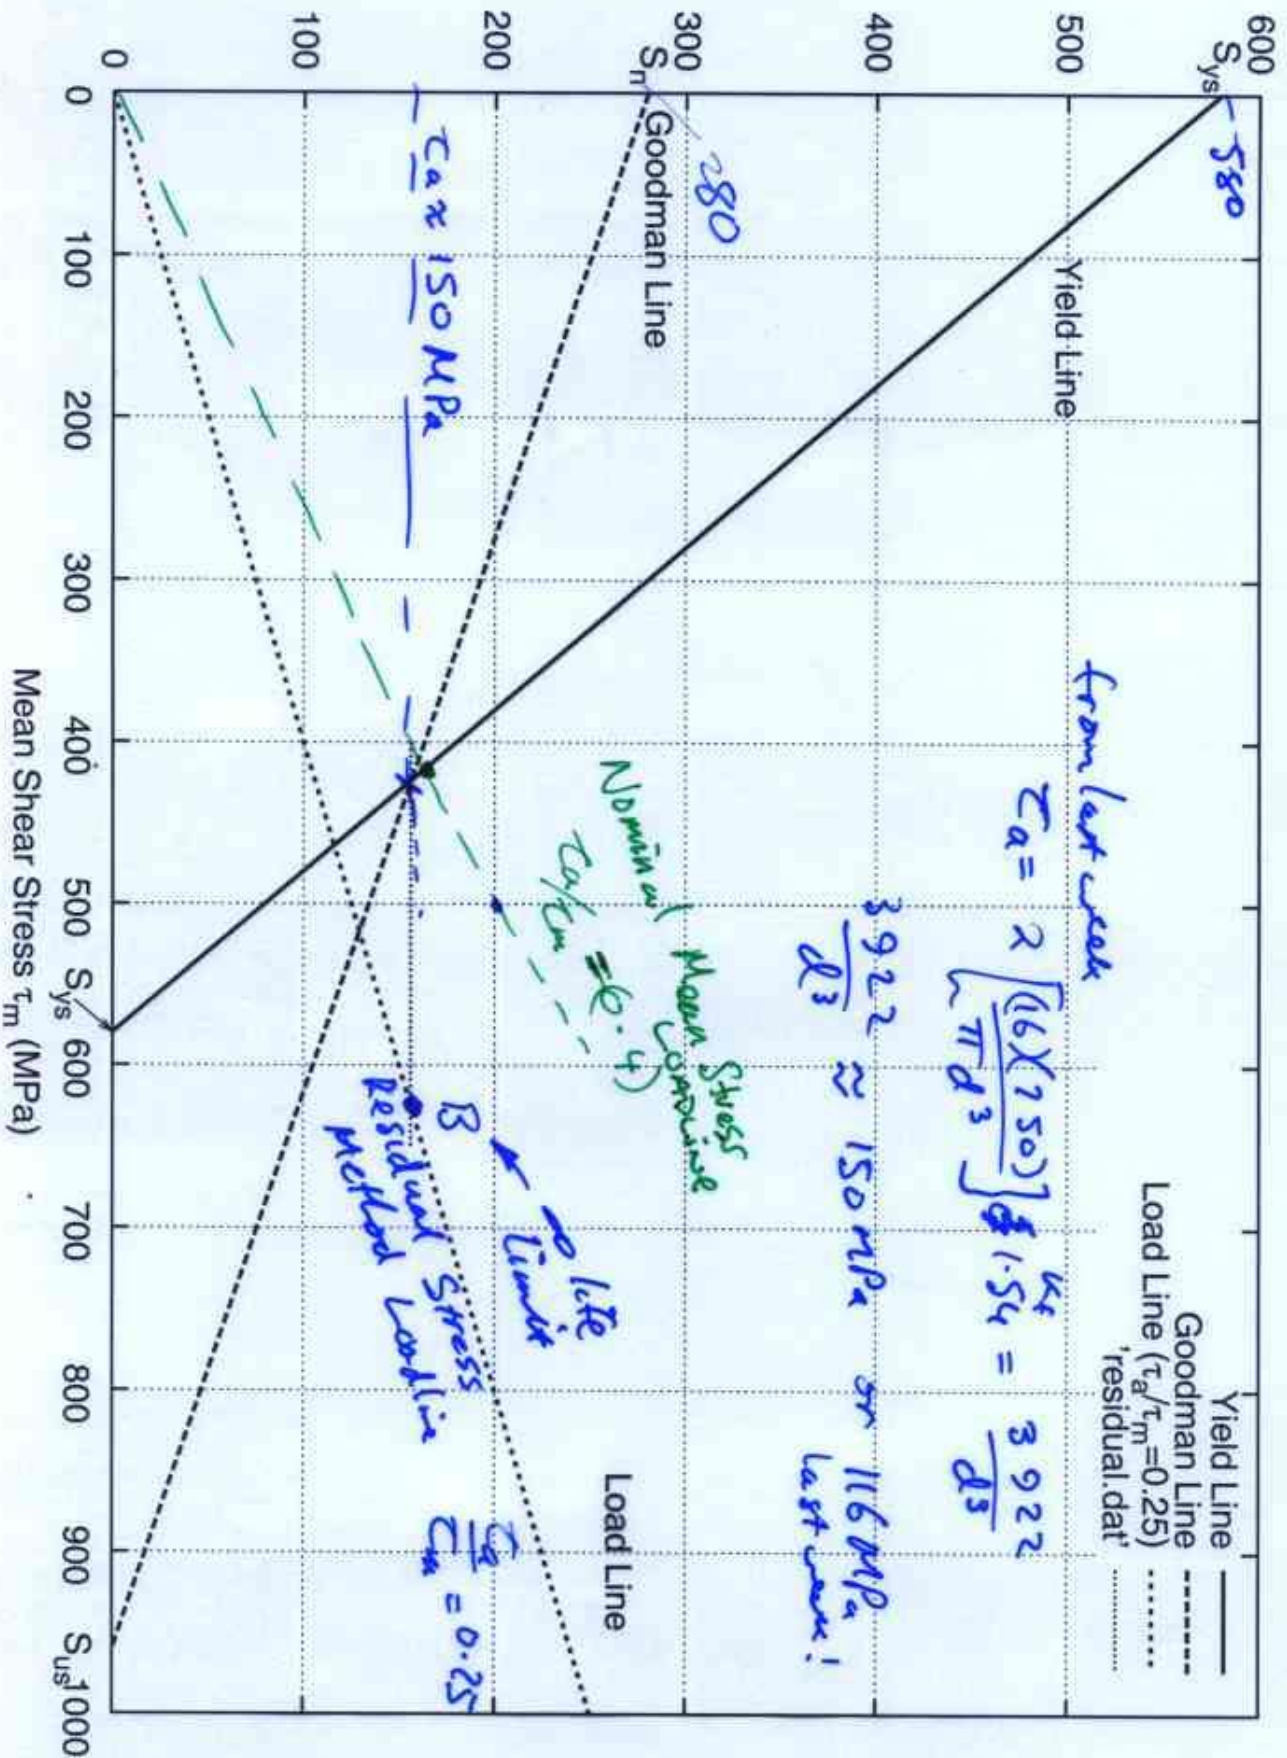 600
S_ys
580
500
400
300
S_n
280
200
100
0
0
100
200
300
400
500
S_ys
600
700
800
900
S_us
1000
Mean Shear Stress τ_m (MPa)
Yield Line
Goodman Line
Load Line (τ_a/τ_m=0.25)
'residual.dat'
Yield Line
Goodman Line
Load Line
from last week
τ_a = 2 [(16)(250) / πd³] 1.54 = 3922 / d³
K_f
3922 / d³ ≈ 150 MPa or 116 MPa
last week!
Nominal Mean Stress
Loadline
τ_a/τ_m = 0.4)
τ_a ≈ 150 MPa
B
∞ life
limit
Residual Stress
Method Loadline τ_a / τ_m = 0.25